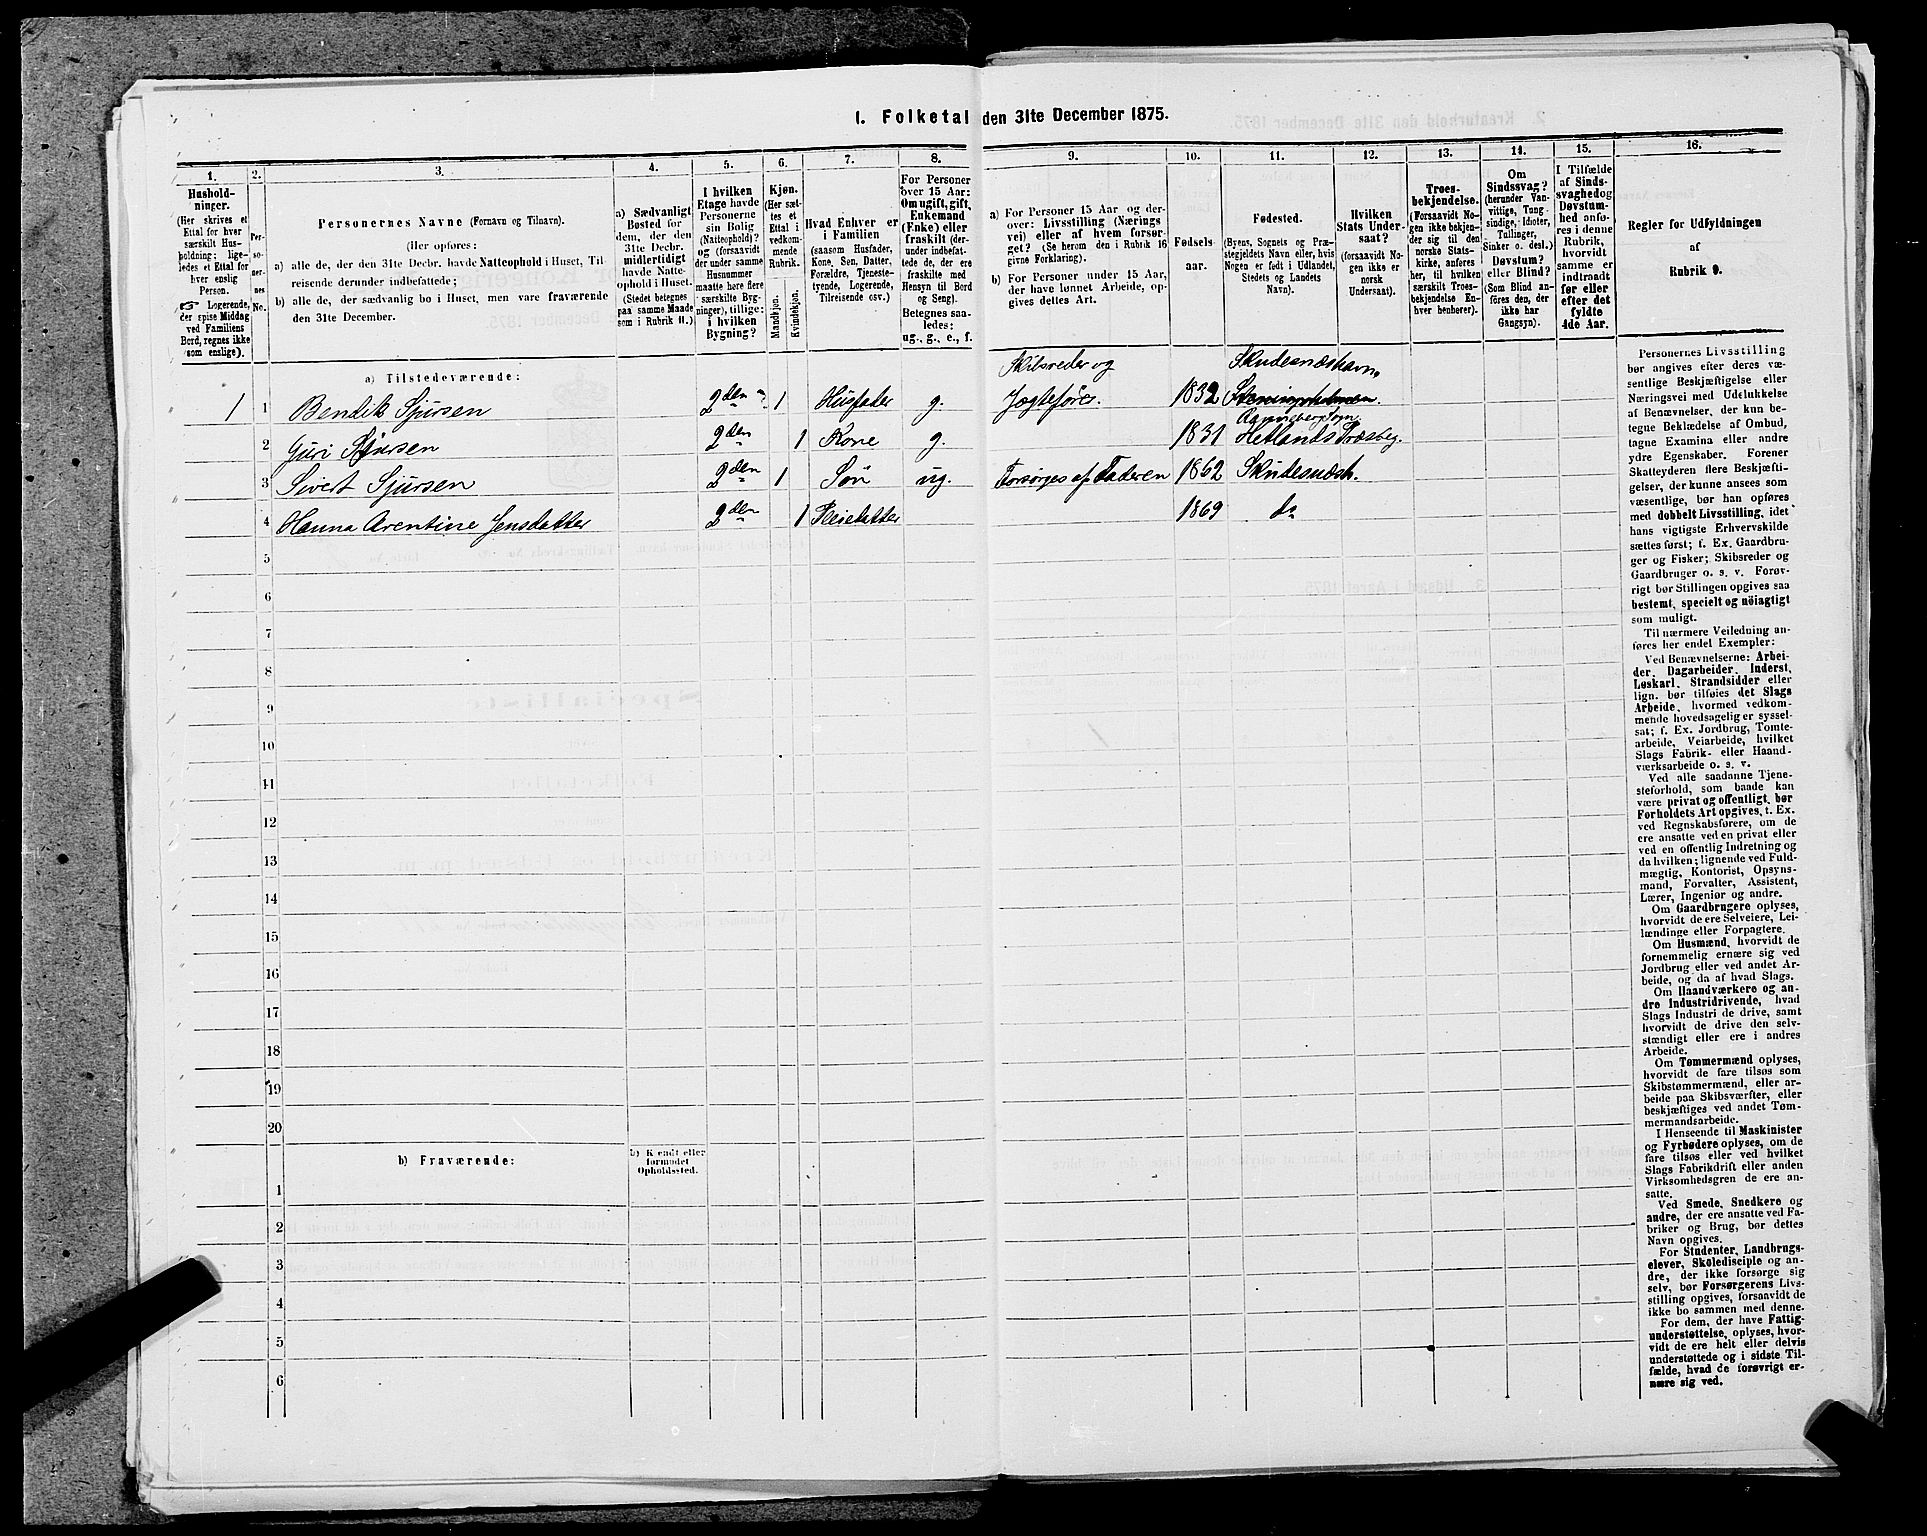 1. Folketal den 31te December 1875.
1.
Hushold-
ninger.
(Her skrives et
Ettal for hver
særskilt Hus-
holdning; lige-
ledes et Ettal for
hver enslig
Person.
☞ Logerende,
der spise Middag
ved Familiens
Bord, regnes ikke
som enslige).
2.
Per-
so-
ner-
nes
No.
3.
Personernes Navne (Fornavn og Tilnavn).
(Her opføres:
a) alle de, der den 31te Decbr. havde Natteophold i Huset, Til-
reisende derunder indbefattede;
b) alle de, der sædvanlig bo i Huset, men vare fraværende
den 31te December.
4.
a) Sædvanligt
Bosted for
dem, der den
31te Decbr.
midlertidigt
havde Natte-
ophold i Huset.
(Stedet betegnes
paa samme Maade
som i Rubrik 11.)
5.
I hvilken
Etage havde
Personerne
sin Bolig
(Natteophold)?
og (forsaavidt
der under samme
Husnummer
maatte høre flere
særskilte Byg-
ninger), tillige:
i hvilken
Bygning?
6.
Kjøn.
(Her sæt-
tes et
Ettal i
vedkom-
mende
Rubrik.)
Mandkjøn.
Kvindekjøn.
7.
Hvad Enhver er
i Familien
(saasom Husfader,
Kone, Søn, Datter,
Forældre, Tjeneste-
tyende, Logerende,
Tilreisende osv.)
8.
For Personer
over 15 Aar:
Om ugift, gift,
Enkemand
(Enke) eller
fraskilt (der-
under indbefat-
tede de, der ere
fraskilte med
Hensyn til Bord
og Seng).
Betegnes saa-
ledes:
ug., g., e., f.
9.
a) For Personer 15 Aar og der-
over: Livsstilling (Nærings
vei) eller af hvem forsør-
get? (Se herom den i Rubrik 16
givne Forklaring).
b) For Personer under 15 Aar,
der have lønnet Arbeide, op-
gives dettes Art.
10.
Fødsels-
aar.
11.
Fødested.
(Byens, Sognets og Præ-
stegjeldets Navn eller, hvis
Nogen er født i Udlandet,
Stedets og Landets
Navn).
12.
Hvilken
Stats Under-
saat?
(forsaavidt No-
gen ikke er
norsk
Undersaat).
13.
Troes-
bekjendelse.
(Forsaavidt No-
gen ikke bekjen-
der sig til den
norske Stats-
kirke, anføres
her, til hvilken
særskilt Troes-
bekjendelse En-
hver henhører).
14.
Om
Sindssvag?
(herunder Van-
vittige, Tung-
sindige, Idioter,
Tullinger,
Sinker o. desl.)
Døvstum?
eller Blind?
(Som Blind an-
føres den, der
ikke har
Gangsyn).
15.
I Tilfælde
af Sinds-
svaghed og
Døvstum-
hed anfø-
res i denne
Rubrik,
hvorvidt
samme er
indtraadt
før eller
efter det
fyldte
4de Aar.
16.
Regler for Udfyldningen
af
Rubrik 9.
a) Tilstedeværende:
Skibsreder og Skudesnæshavn,
1 1 Bendik Sjursen 2den 1 Husfader g. Jagtefører. 1832
2 Guri Sjursen 2den 1 Kone g. 1831 Hetlands Præsteg.
3 Sivert Sjursen 2den 1 Søn ug. Forsørges af Faderen 1862 Skudesnæsh.
4 Hanna Arentine Jensdatter 2den 1 Pleiedatter 1869 do
5
6
7
8
9
10
11
12
13
14
15
16
17
18
19
20
b) Fraværende:
b) Kjendt eller
formodet
Opholdssted.
1
2
3
4
5
6
Personernes Livsstilling
bør angives efter deres væ-
sentlige Beskjæftigelse eller
Næringsvei med Udelukkelse
af Benævnelser, der kun be-
tegne Beklædelse af Ombud,
tagne Examina eller andre
ydre Egenskaber. Forener
Skatteyderen flere Beskjæfti-
gelser, der kunne ansees som
væsentlige, bør han opføres
med dobbelt Livsstilling, idet
hans vigtigste Erhvervskilde
sættes først; f. Ex. Gaardbru-
ger og Fisker; Skibsreder og
Gaardbruger o. s. v. Forøv-
rigt bør Stillingen opgives saa
bestemt, specielt og nöiagtigt
som muligt.
Til nærmere Veiledning an-
føres her endel Exempler:
Ved Benævnelserne: Arbei-
der, Dagarbeider, Inderst,
Løskarl, Strandsidder eller
lign. bør tilføies det Slags
Arbeide, hvormed vedkom-
mende hovedsagelig er syssel-
sat; f. Ex. Jordbrug, Tomte-
arbeide, Veiarbeide, hvilket
Slags Fabrik- eller Haand-
værksarbeide o. s. v.
Ved alle saadanne Tjene-
steforhold, som baade kan
være privat og offentligt, bør
Forholdets Art opgives, t. Ex.
ved Regnskabsførere, om de
ere ansatte ved en privat eller
ved en offentlig Indretning og
da hvilken; lignende ved Fuld-
mægtig, Kontorist, Opsyns-
mand, Forvalter, Assistent,
Lærer, Ingeniør og andre.
Om Gaardbrugere oplyses,
hvorvidt de ere Selveiere, Lei-
lændinge eller Forpagtere.
Om Husmænd, hvorvidt de
fornemmelig ernære sig ved
Jordbrug eller ved andet Ar-
beide, og da af hvad Slags.
Om Haandværkere og an-
dre Industridrivende, hvad
Slags Industri de drive, samt
hvorvidt de drive den selv-
stændigt eller ere i andres
Arbeide.
Om Tømmermænd oplyses,
hvorvidt de fare tilsøs som
Skibstømmermænd, eller ar-
beide paa Skibsværfter, eller
beskjæftiges ved andet Tøm-
mermandsarbeide.
I Henseende til Maskinister
og Fyrbødere oplyses, om de
fare tilsøs eller ved hvilket
Slags Fabrikdrift eller anden
Virksomhedsgren de ere an-
satte.
Ved Smede, Snedkere og
andre, der ere ansatte ved Fa-
briker og Brug, bør dettes
Navn opgives.
For Studenter, Landbrugs-
elever, Skoledisciple og an-
dre, der ikke forsørge sig
selv, bør Forsørgerens Livs-
stilling opgives, forsaavidt de
ikke bo sammen med denne.
For dem, der have Fattig-
understøttelse, oplyses, hvor-
vidt de ere helt eller delvis
understøttede og i sidste Til-
fælde, hvad de forøvrigt er-
nære sig ved.